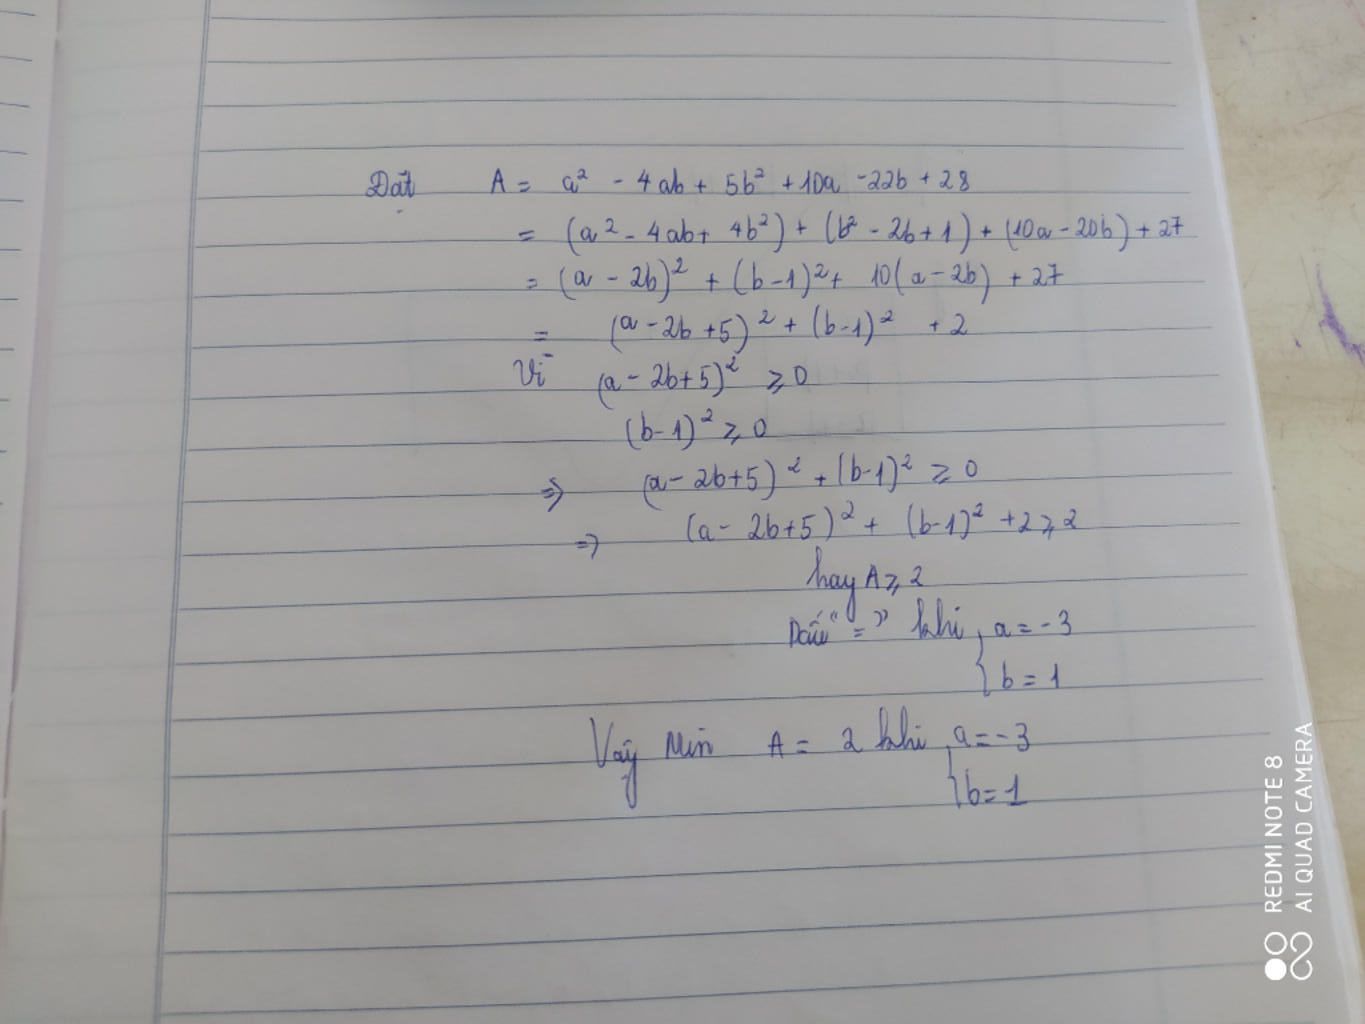 Đặt A = a² - 4ab + 5b² + 10a - 22b + 28
= (a² - 4ab + 4b²) + (b² - 2b + 1) + (10a - 20b) + 27
= (a - 2b)² + (b - 1)² + 10(a - 2b) + 27
= (a - 2b + 5)² + (b - 1)² + 2
Vì (a - 2b + 5)² ⩾ 0
(b - 1)² ⩾ 0
⇒ (a - 2b + 5)² + (b - 1)² ⩾ 0
⇒ (a - 2b + 5)² + (b - 1)² + 2 ⩾ 2
hay A ⩾ 2
Dấu "=" khi { a = -3
b = 1
Vậy Min A = 2 khi { a = -3
b = 1
REDMI NOTE 8
AI QUAD CAMERA